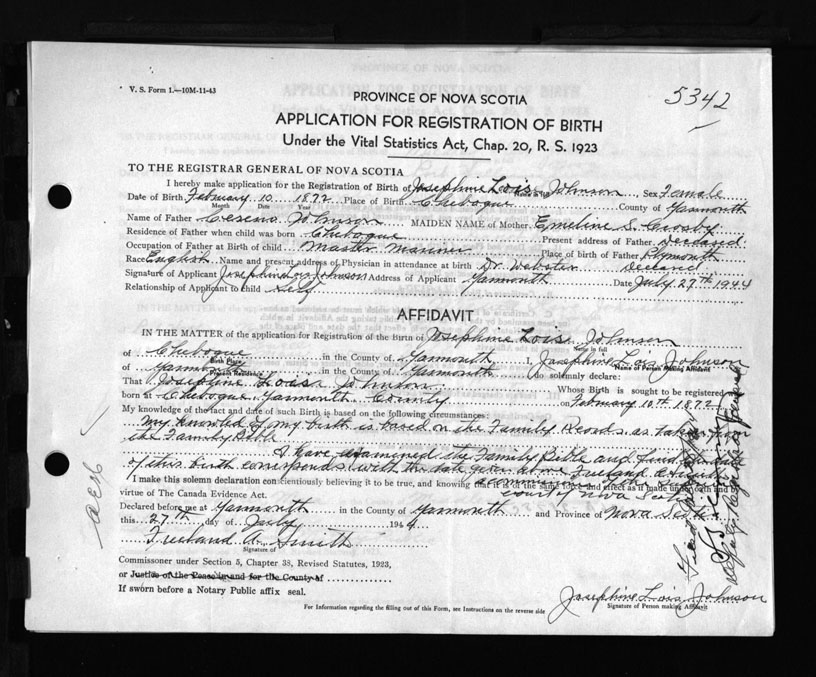 V. S. Form 1.—10M-11-43
5342
PROVINCE OF NOVA SCOTIA
APPLICATION FOR REGISTRATION OF BIRTH
Under the Vital Statistics Act, Chap. 20, R. S. 1923
TO THE REGISTRAR GENERAL OF NOVA SCOTIA
I hereby make application for the Registration of Birth of Josephine Lois Johnson, Sex Female
Date of Birth February 10 1872 Place of Birth Chebogue County of Yarmouth
Month Date Year
Name of Father Johnson MAIDEN NAME of Mother Emeline S. Crosby
Residence of Father when child was born Chebogue Present address of Father Deceased
Occupation of Father at Birth of child Master Mariner Place of Birth of Father Plymouth
Race English Name and present address of Physician in attendance at birth Dr Webster
Signature of Applicant Josephine Lois Johnson Address of Applicant Yarmouth Date July 27th 1944
Relationship of Applicant to child Self
AFFIDAVIT
IN THE MATTER of the application for Registration of the Birth of Josephine Lois Johnson
Name in full
of Chebogue in the County of Yarmouth I, Josephine Lois Johnson
Birth Place Name of Person Making Affidavit
of Yarmouth in the County of Yarmouth do solemnly declare:
Present Residence
That Josephine Lois Johnson Whose Birth is sought to be registered
born at Chebogue Yarmouth County on February 10th 1872
My knowledge of the fact and date of such Birth is based on the following circumstances:
My knowled of my birth is based on the Family Records as taken from
the Family Bible
I have examined the Family Bible and find the date
of this birth corresponds with the date given above Freeland A Smith
I make this solemn declaration conscientiously believing it to be true, and knowing that it is of the same force and effect as if made under oath and by
a commissioner of the Supreme
court of Nova Scotia
virtue of The Canada Evidence Act.
Declared before me at Yarmouth in the County of Yarmouth and Province of Nova Scotia
this 27th day of July 1944
Freeland A. Smith
Signature of
Commissioner under Section 5, Chapter 38, Revised Statutes, 1923,
or Justice of the Peace in and for the County of
If sworn before a Notary Public affix seal.
Josephine Lois Johnson
For Information regarding the filling out of this Form, see Instructions on the reverse side
Signature of Person making Affidavit